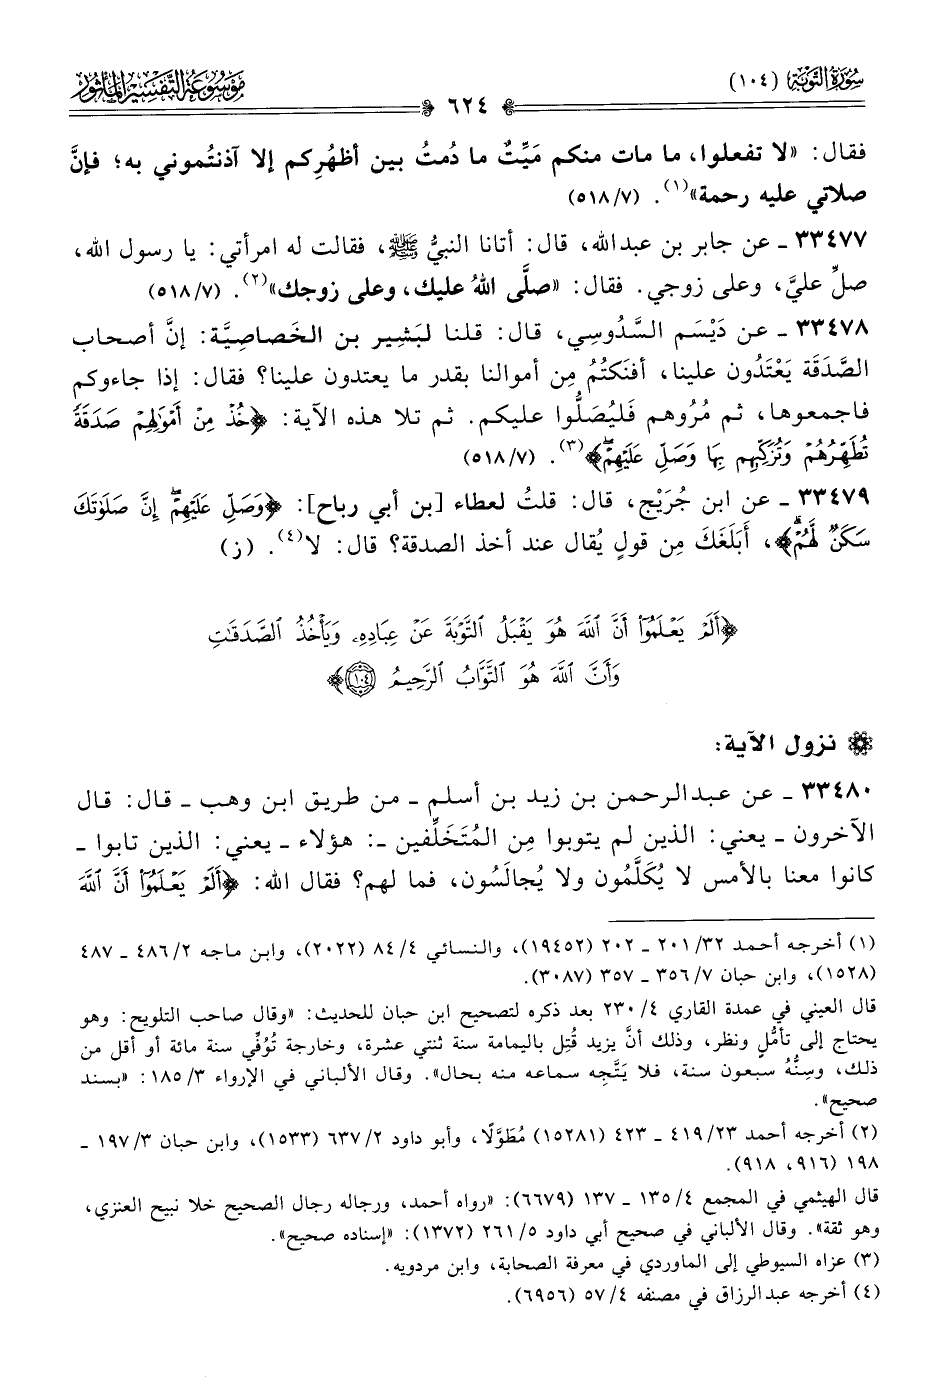 سُورَةُ التَّوْبَةِ (١٠٤)
٦٢٤
مَوْسُوعَةُ التَّفْسِيرِ المَأْثُورِ
فقال: «لا تفعلوا، ما مات منكم مَيِّتٌ ما دُمتُ بين أظهُرِكم إلا آذنتُموني به؛ فإنَّ
صلاتي عليه رحمة»(١). (٥١٨/٧)
٣٣٤٧٧ ـ عن جابر بن عبدالله، قال: أتانا النبيُّ ﷺ، فقالت له امرأتي: يا رسول الله،
صلِّ عليَّ، وعلى زوجي. فقال: «صلَّى اللهُ عليك، وعلى زوجك»(٢). (٥١٨/٧)
٣٣٤٧٨ ـ عن دَيْسَم السَّدُوسِي، قال: قلنا لبَشِير بن الخَصاصِيَّة: إنَّ أصحاب
الصَّدَقة يَعْتَدُون علينا، أفنَكتُمُ مِن أموالنا بقدر ما يعتدون علينا؟ فقال: إذا جاءوكم
فاجمعوها، ثم مُرُوهم فَليُصَلُّوا عليكم. ثم تلا هذه الآية: ﴿خُذْ مِنْ أَمْوَٰلِهِمْ صَدَقَةً
تُطَهِّرُهُمْ وَتُزَكِّيهِم بِهَا وَصَلِّ عَلَيْهِمْۖ﴾(٣). (٥١٨/٧)
٣٣٤٧٩ ـ عن ابن جُرَيْج، قال: قلتُ لعطاء [بن أبي رباح]: ﴿وَصَلِّ عَلَيْهِمْۖ إِنَّ صَلَوٰتَكَ
سَكَنٌ لَّهُمْۗ﴾، أَبَلَغَكَ مِن قولٍ يُقال عند أخذ الصدقة؟ قال: لا(٤). (ز)
﴿أَلَمْ يَعْلَمُوٓا۟ أَنَّ ٱللَّهَ هُوَ يَقْبَلُ ٱلتَّوْبَةَ عَنْ عِبَادِهِۦ وَيَأْخُذُ ٱلصَّدَقَٰتِ
وَأَنَّ ٱللَّهَ هُوَ ٱلتَّوَّابُ ٱلرَّحِيمُ ١٠٤﴾
نزول الآية:
٣٣٤٨٠ ـ عن عبدالرحمن بن زيد بن أسلم ـ من طريق ابن وهب ـ قال: قال
الآخرون ـ يعني: الذين لم يتوبوا مِن المُتَخَلِّفين ـ: هؤلاء ـ يعني: الذين تابوا ـ
كانوا معنا بالأمس لا يُكَلَّمُون ولا يُجالَسُون، فما لهم؟ فقال الله: ﴿أَلَمْ يَعْلَمُوٓا۟ أَنَّ ٱللَّهَ
(١) أخرجه أحمد ٣٢/ ٢٠١ ـ ٢٠٢ (١٩٤٥٢)، والنسائي ٤/ ٨٤ (٢٠٢٢)، وابن ماجه ٢/ ٤٨٦ ـ ٤٨٧
(١٥٢٨)، وابن حبان ٧/ ٣٥٦ ـ ٣٥٧ (٣٠٨٧).
قال العيني في عمدة القاري ٤/ ٢٣٠ بعد ذكره لتصحيح ابن حبان للحديث: «وقال صاحب التلويح: وهو
يحتاج إلى تأمُّلٍ ونظر، وذلك أنَّ يزيد قُتِل باليمامة سنة ثنتي عشرة، وخارجة تُوُفِّي سنة مائة أو أقل من
ذلك، وسِنُّهُ سبعون سنة، فلا يَتَّجِه سماعه منه بحال». وقال الألباني في الإرواء ٣/ ١٨٥: «بسند
صحيح».
(٢) أخرجه أحمد ٢٣/ ٤١٩ ـ ٤٢٣ (١٥٢٨١) مُطَوَّلًا، وأبو داود ٢/ ٦٣٧ (١٥٣٣)، وابن حبان ٣/ ١٩٧ ـ
١٩٨ (٩١٦، ٩١٨).
قال الهيثمي في المجمع ٤/ ١٣٥ ـ ١٣٧ (٦٦٧٩): «رواه أحمد، ورجاله رجال الصحيح خلا نبيح العنزي،
وهو ثقة». وقال الألباني في صحيح أبي داود ٥/ ٢٦١ (١٣٧٢): «إسناده صحيح».
(٣) عزاه السيوطي إلى الماوردي في معرفة الصحابة، وابن مردويه.
(٤) أخرجه عبدالرزاق في مصنفه ٤/ ٥٧ (٦٩٥٦).